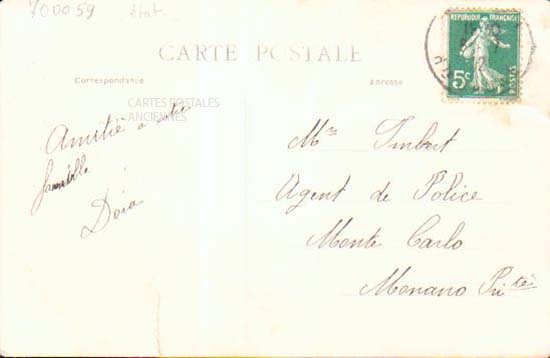 700059 état
CARTE POSTALE
Correspondance
adresse
RÉPUBLIQUE FRANÇAISE
5c
POSTES
CARTES POSTALES
ANCIENNES
Amitié à votre
famille
Doia
Mr Imbert
Agent de Police
Monte Carlo
Monano Pri té